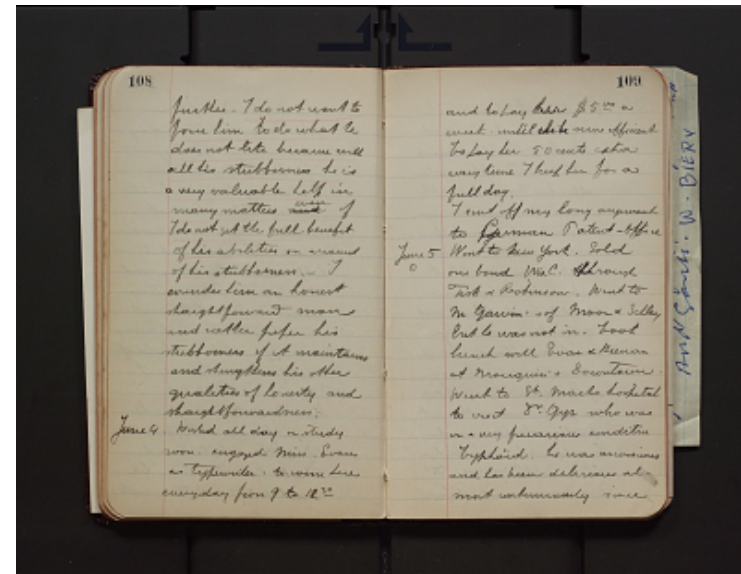 108
further. I do not want to
force him to do what he
does not like because with
all his stubborness he is
a very valuable help in
many matters even if
I do not get the full benefit
of his abilities on account
of his stubborness. I
consider him an honest
straightforward man
and rather prefer his
stubborness if it maintains
and strengthens his other
qualities of honesty and
straightforwardness.
June 4. Worked all day in study
room. engaged Miss. Evans
as typewriter. to come here
everyday from 9 to 12 30
109
and to pay her $5 00 a
week. until she is more efficient
to pay her 50 cents extra
every time I keep her for a
full day.
I sent off my long argument
to German Patent-Office
June 5 Went to New York. Sold
one bond through
& Robinson. Went to
Mr of Moor &
but he was not in. Took
lunch with Evas &
at Mouquin's Downtown.
Went to St. Marks hospital
to visit Dr. who was
in a very precarious condition
typhoid. he was
and has been delirious al-
most continuously since
W. BIERY